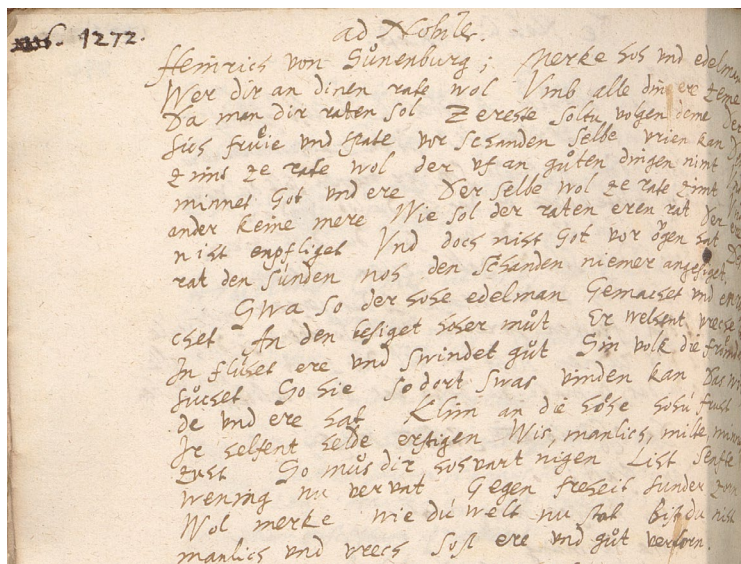 1272. ad Nobiles.
Heinrich von Sůnenburg; Merke hoh vnd edelman
Wer dir an dinen rate wol Vmb alle din ere zeme
Da man dir raten sol Zereste soltu volgen deme Der
sich frůie vnd spate vor schanden selbe vrien kan
zimt ze rate wol der vf an gůten dingen nimt
minnet Got vnd ere Der selbe wol ze rate zimt
ander keine mere Wie sol der raten eren rat Der ere
niht enpfliget Vnd doch niht Got vor ögen hat
rat den sünden noh den schanden niemer angesiget.
Swa so der hohe edelman Gemachet vnd
chet An den besiget hoher můt Er welhent vreche
In fluhet ere vnd swindet gůt Sin volk die frömde
sůchet So hie so dort swas vinden kan Das
de vnd ere hat Klim an die höhe hohü fruht
Ir helfent selde erstigen Wis, manlich, milte, minne
zuht So můs dir hohvart nigen List senfte
wening nu vervat Gegen freheit sunder zorn
Wol merke wie dü welt nu stat Bist du niht
manlich vnd vrech Sost ere vnd gůt verlorn.